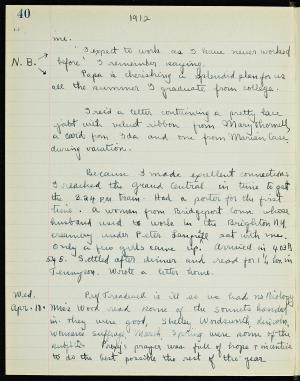 40
1912
me.
"I expect to work as I have never worked
N.B. before" I remember saying.
Papa is cherishing a splendid plan for us
all the summer I graduate from college.
I rec'd a letter containing a pretty lace
jabot with velvet ribbon from Mary
a card from Ida and one from Marian Case
during vacation.
Because I made excellent connections
I reached the Grand Central in time to get
the 2.24 P.M. train. Had a porter for the first
time. A woman from Bridgeport Conn whose
husband used to work in the Brighton N.Y.
creamery under Peter sat with me.
Only a few girls came up. Arrived in
5.45. Settled after dinner and read for in
Tennyson. Wrote a letter home.
Wed. Prof Treadwell is ill so we had no Biology
Apr. 10. Miss Word read some of the sonnets handed
in. They were good, Shelley, Wordsworth, Lincoln,
woman's suffrage, March, Spring were some of the
subjects. Prexy's prayer was full of hope + incentive
to do the best possible the rest of the year.